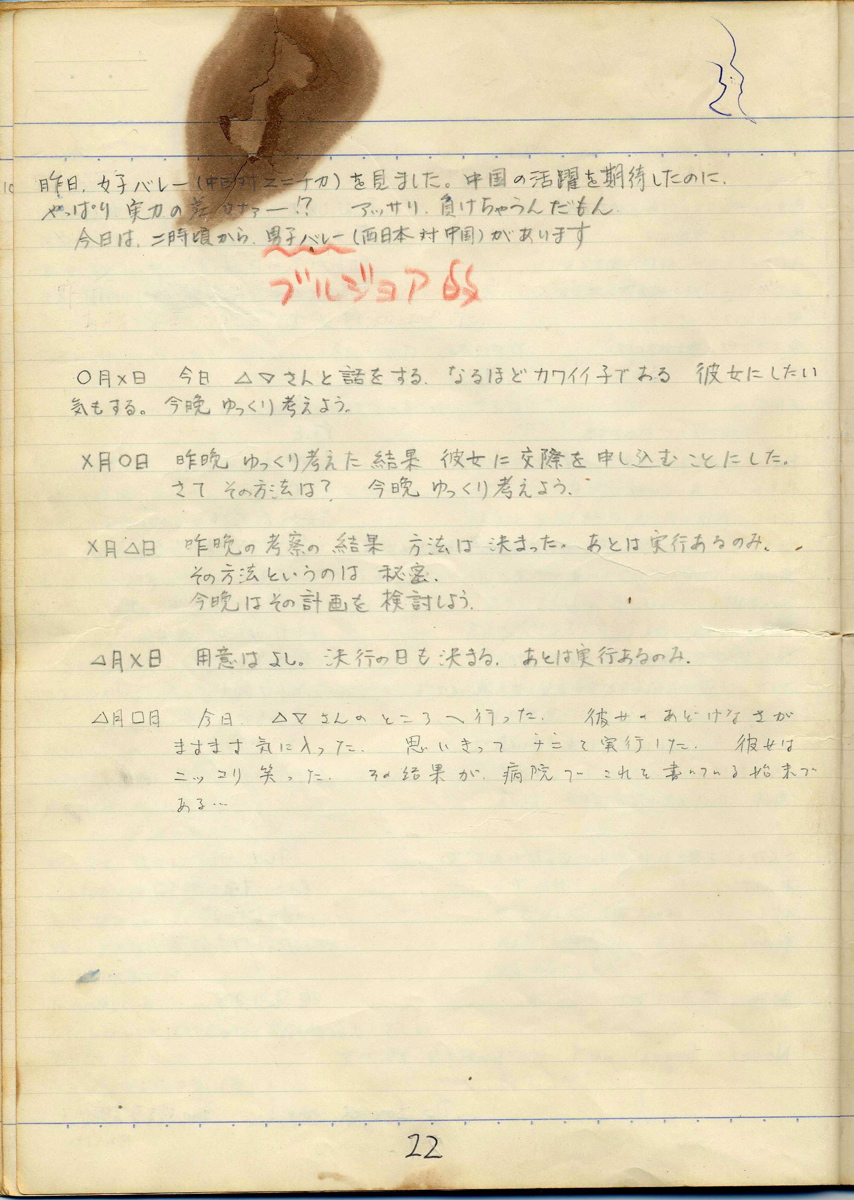 昨日、女子バレー(中国対ユニチカ)を見ました。中国の活躍を期待したのに、
やっぱり 実力の差かナァー!? アッサリ、負けちゃうんだもん。
今日は、二時頃から、男子バレー(西日本対中国)があります
ブルジョア
○月×日 今日 △▽さんと話をする、なるほどカワイイ子である 彼女にしたい
気もする。今晩 ゆっくり考えよう。
×月○日 昨晩 ゆっくり考えた 結果 彼女に 交際を 申し込む ことにした。
さて その方法は? 今晩 ゆっくり考えよう、
×月△日 昨晩の考察の 結果 方法は 決まった。あとは実行あるのみ、
その方法というのは 秘密、
今晩はその計画を 検討しよう、
△月×日 用意は よし。決行の日も決まる、あとは実行あるのみ、
△月□日 今日、△▽さんのところへ行った、彼女の あどけなさが
ますます気に入った、思いきって そこで実行した、彼女は
ニッコリ 笑った、その結果が、病院で これを書いている始末で
ある…
22